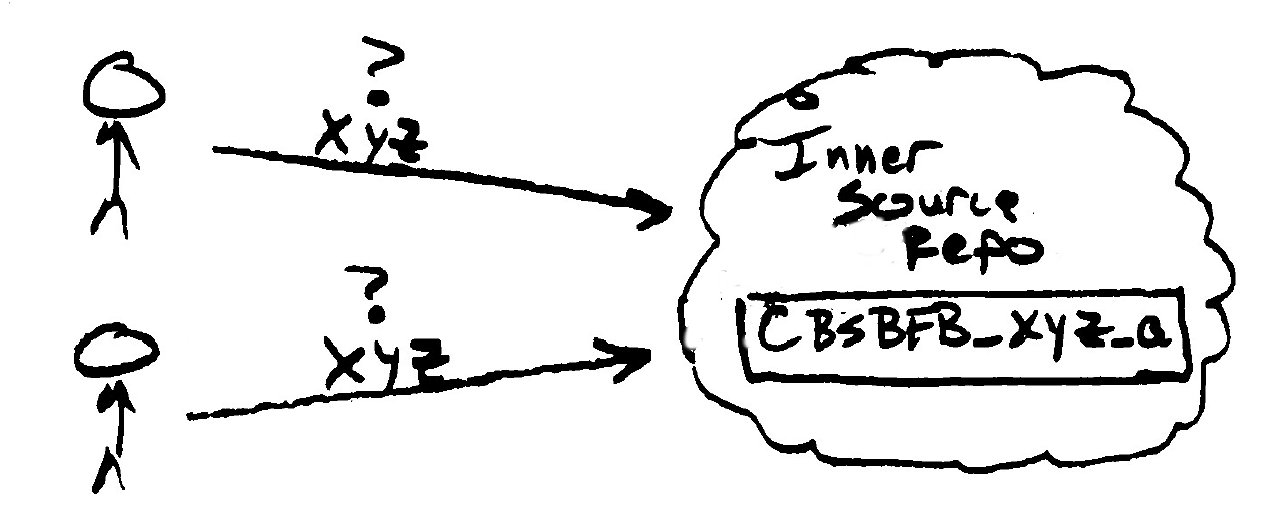 ?
XYZ
Inner
Source
Repo
?
XYZ
CBSBFB_XYZ_a